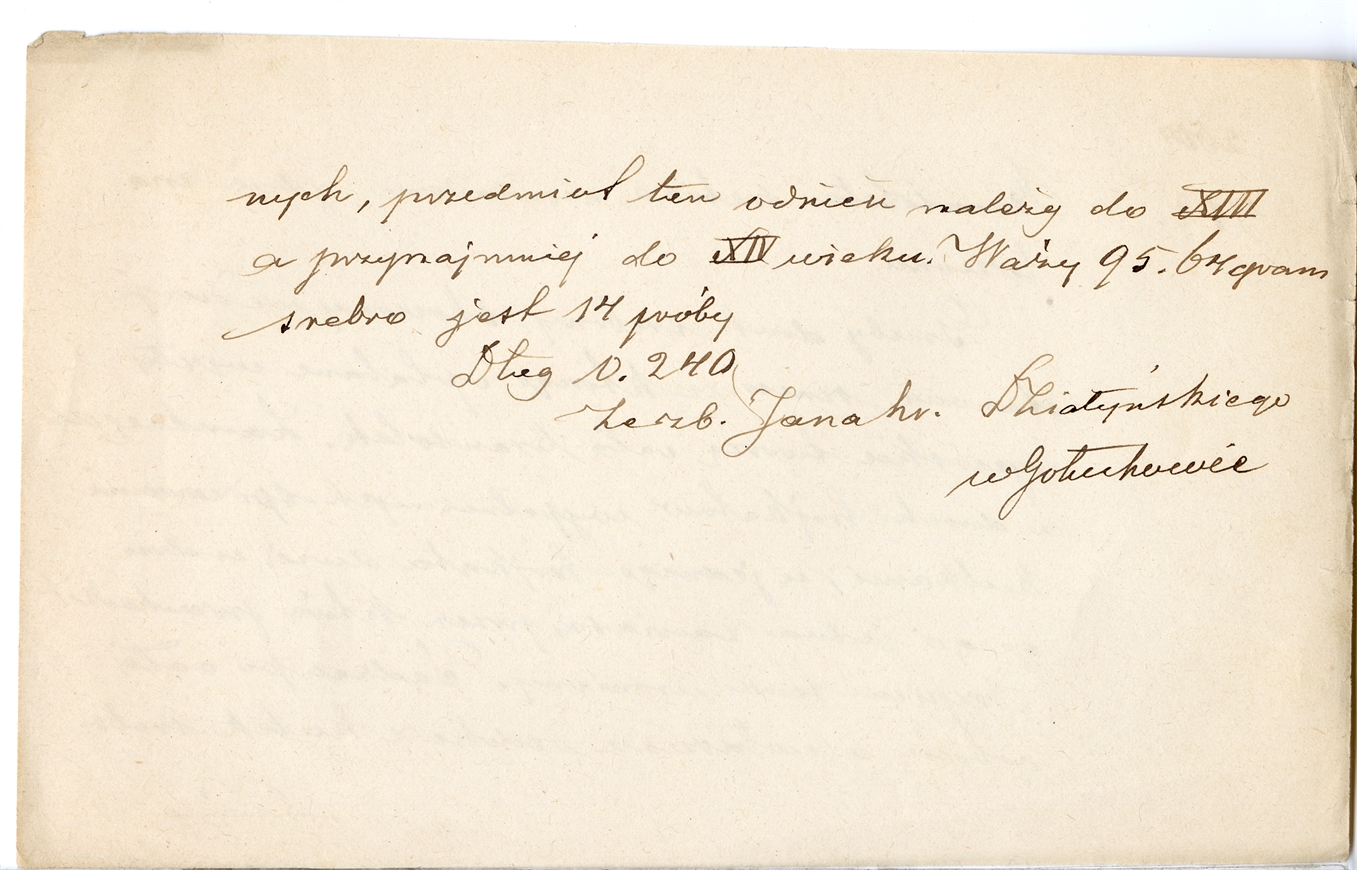 nych, przedmiot ten odnieść należy do XIII
a przynajmniej do XIV wieku. Waży 95.64 gram
srebro jest 14 próby
Dług 0.240
Ze zb. Jana hr. Działyńskiego
w Gołuchowie